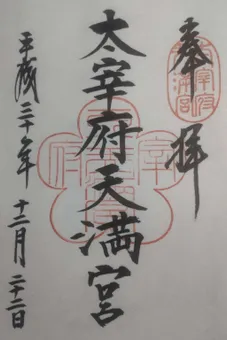 奉拝
太宰府天満宮
平成三十年 十二月 二十二日